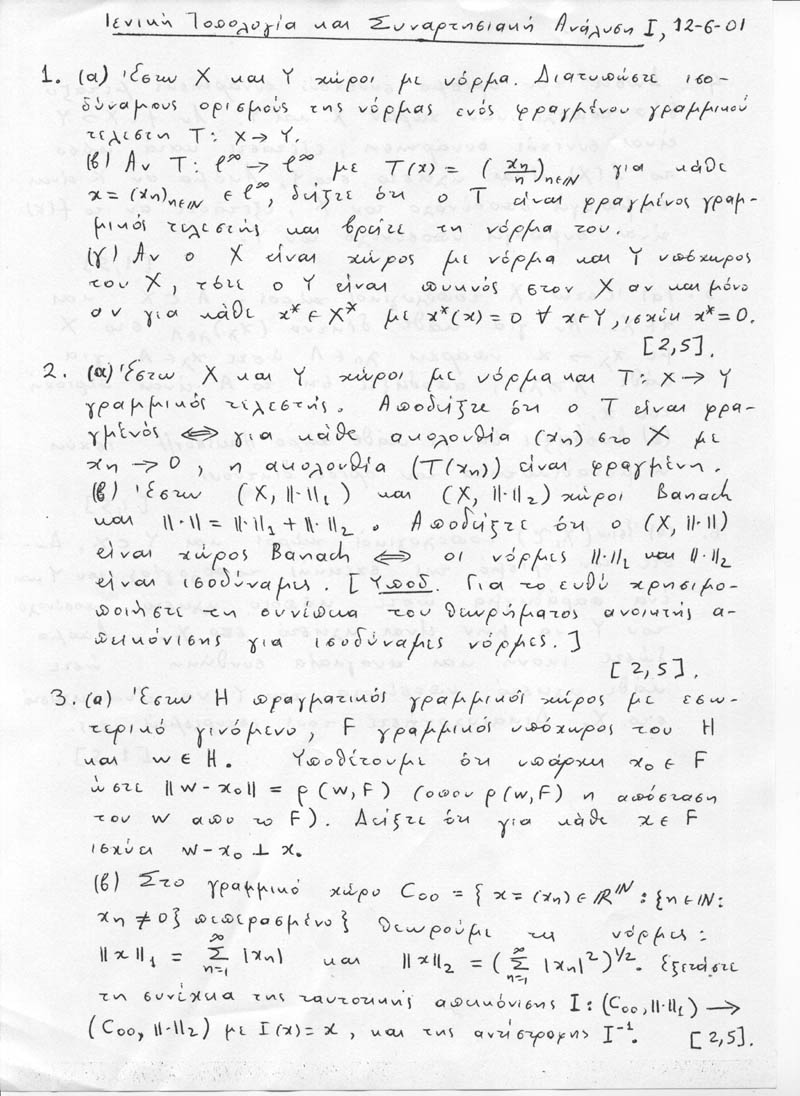 Γενική Τοπολογία και Συναρτησιακή Ανάλυση I, 12-6-01
1. (α) Έστω X και Y χώροι με νόρμα. Διατυπώστε ισο-
δύναμους ορισμούς της νόρμας ενός φραγμένου γραμμικού
τελεστή T: X → Y.
(β) Αν T: ℓ^∞ → ℓ^∞ με T(x) = (x_n/n)_{n∈ℕ} για κάθε
x = (x_n)_{n∈ℕ} ∈ ℓ^∞, δείξτε ότι ο T είναι φραγμένος γραμ-
μικός τελεστής και βρείτε τη νόρμα του.
(γ) Αν ο X είναι χώρος με νόρμα και Y υπόχωρος
του X, τότε ο Y είναι πυκνός στον X αν και μόνο
αν για κάθε x* ∈ X* με x*(x) = 0 ∀ x∈Y, ισχύει x* = 0.
[2,5].
2. (α) Έστω X και Y χώροι με νόρμα και T: X → Y
γραμμικός τελεστής. Αποδείξτε ότι ο T είναι φρα-
γμένος ⟺ για κάθε ακολουθία (x_n) στο X με
x_n → 0, η ακολουθία (T(x_n)) είναι φραγμένη.
(β) Έστω (X, ||·||_1) και (X, ||·||_2) χώροι Banach
και ||·|| = ||·||_1 + ||·||_2. Αποδείξτε ότι ο (X, ||·||)
είναι χώρος Banach ⟺ οι νόρμες ||·||_1 και ||·||_2
είναι ισοδύναμες. [Υποδ. Για το ευθύ χρησιμο-
ποιήστε τη συνέπεια του θεωρήματος ανοικτής α-
πεικόνισης για ισοδύναμες νόρμες.]
[2,5].
3. (α) Έστω H πραγματικός γραμμικός χώρος με εσω-
τερικό γινόμενο, F γραμμικός υπόχωρος του H
και w ∈ H. Υποθέτουμε ότι υπάρχει x_0 ∈ F
ώστε ||w - x_0|| = ρ(w, F) (όπου ρ(w, F) η απόσταση
του w απο το F). Δείξτε ότι για κάθε x ∈ F
ισχύει w - x_0 ⊥ x.
(β) Στο γραμμικό χώρο C_00 = {x = (x_n) ∈ ℝ^ℕ : {n ∈ ℕ:
x_n ≠ 0} πεπερασμένο} θεωρούμε τις νόρμες:
||x||_1 = Σ_{n=1}^∞ |x_n| και ||x||_2 = (Σ_{n=1}^∞ |x_n|^2)^{1/2}. Εξετάστε
τη συνέχεια της ταυτοτικής απεικόνισης I: (C_00, ||·||_1) →
(C_00, ||·||_2) με I(x) = x, και της αντίστροφης I^{-1}. [2,5].